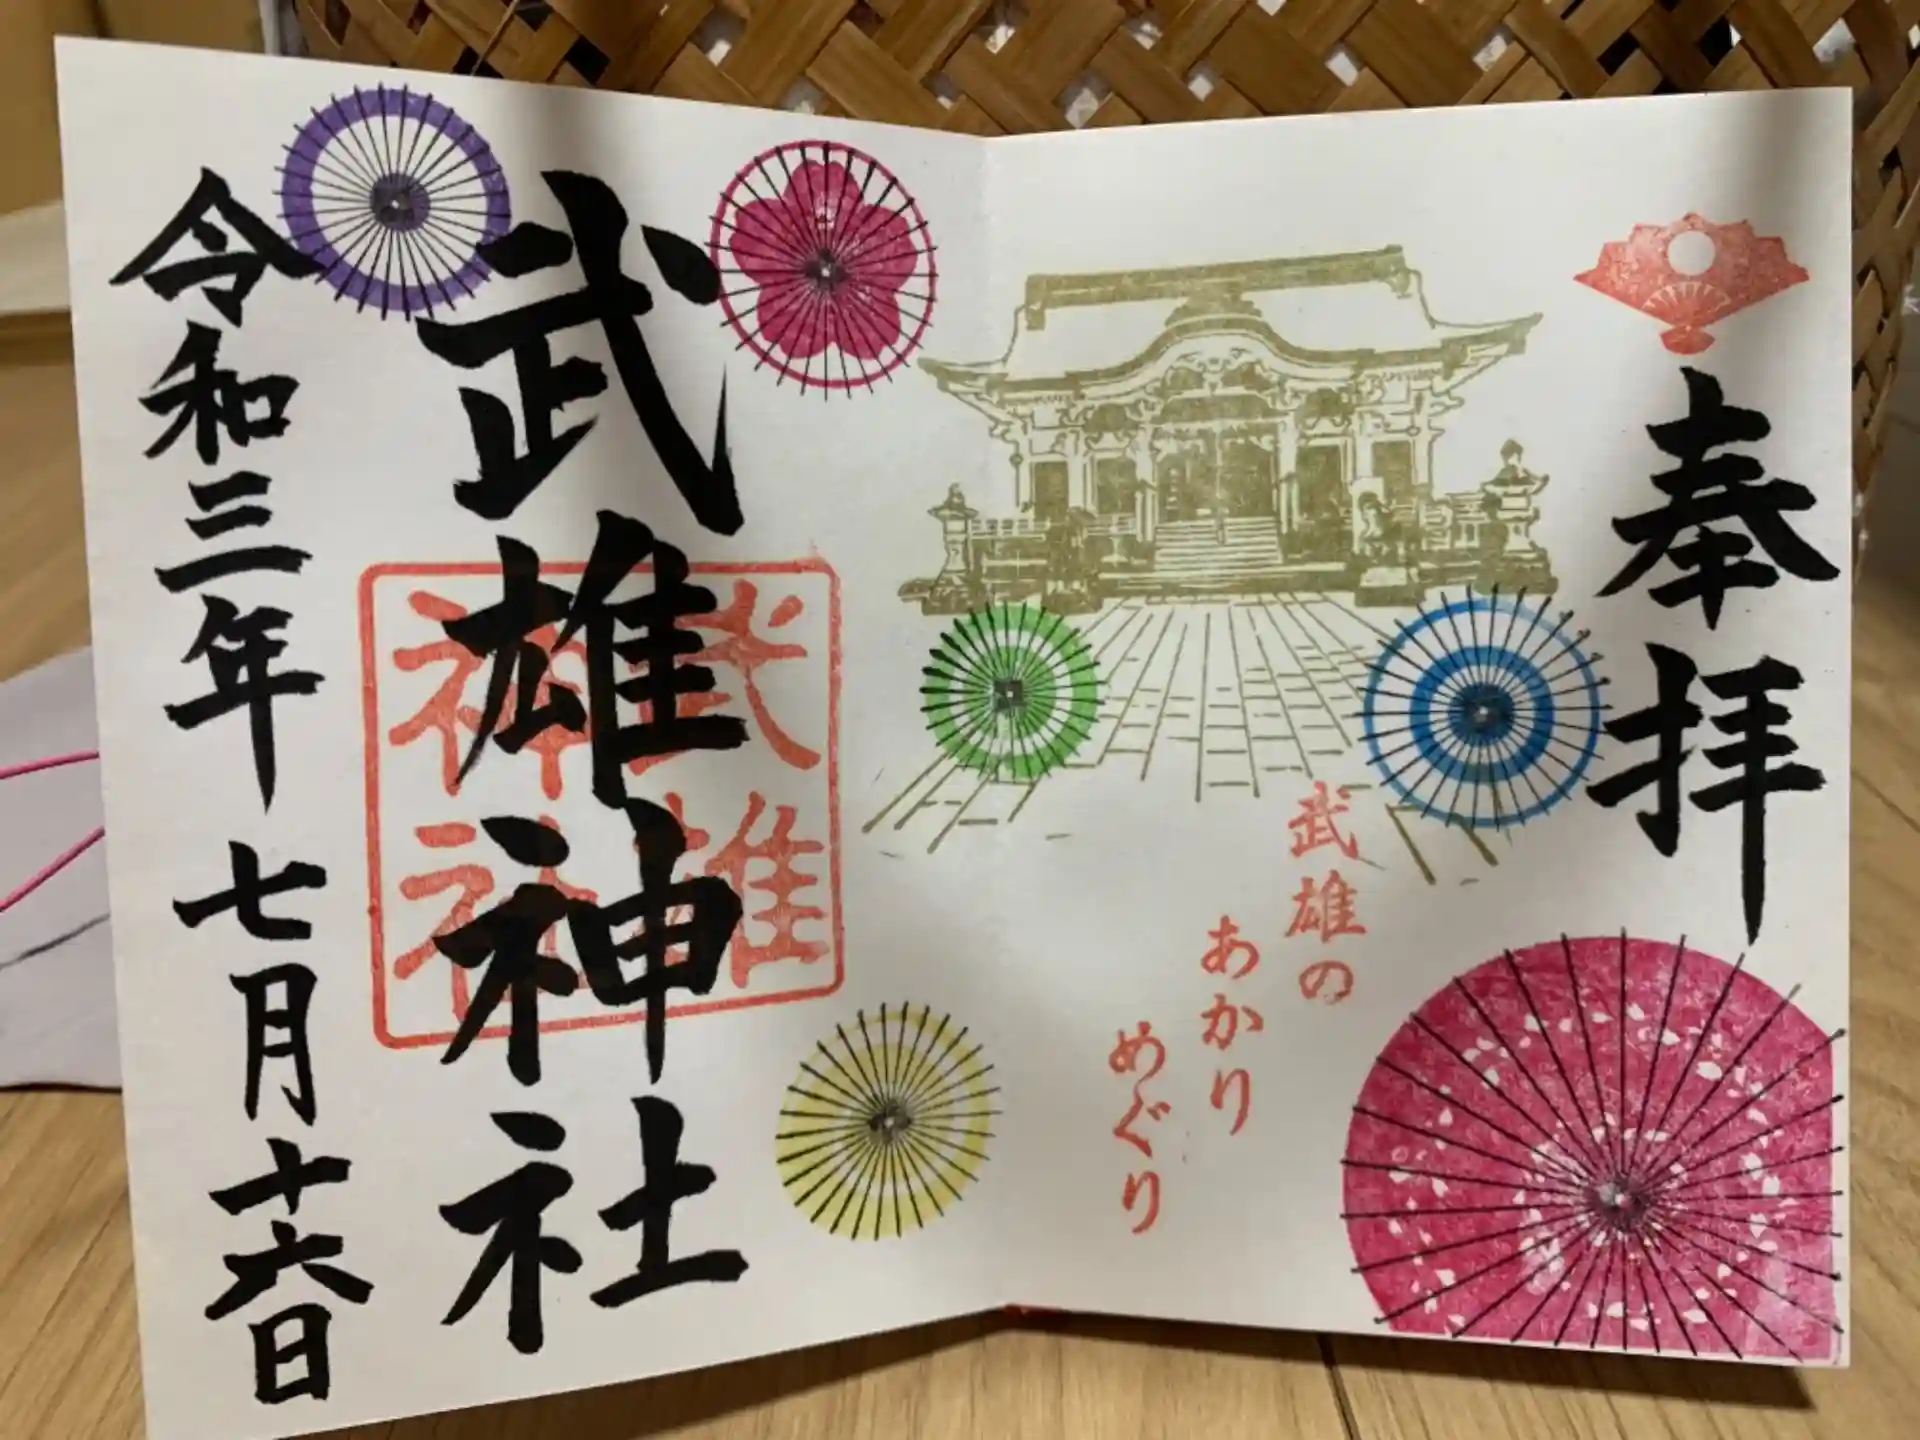 奉拝
武雄の
あかり
めぐり
武雄神社
武雄
神社
令和三年七月十六日